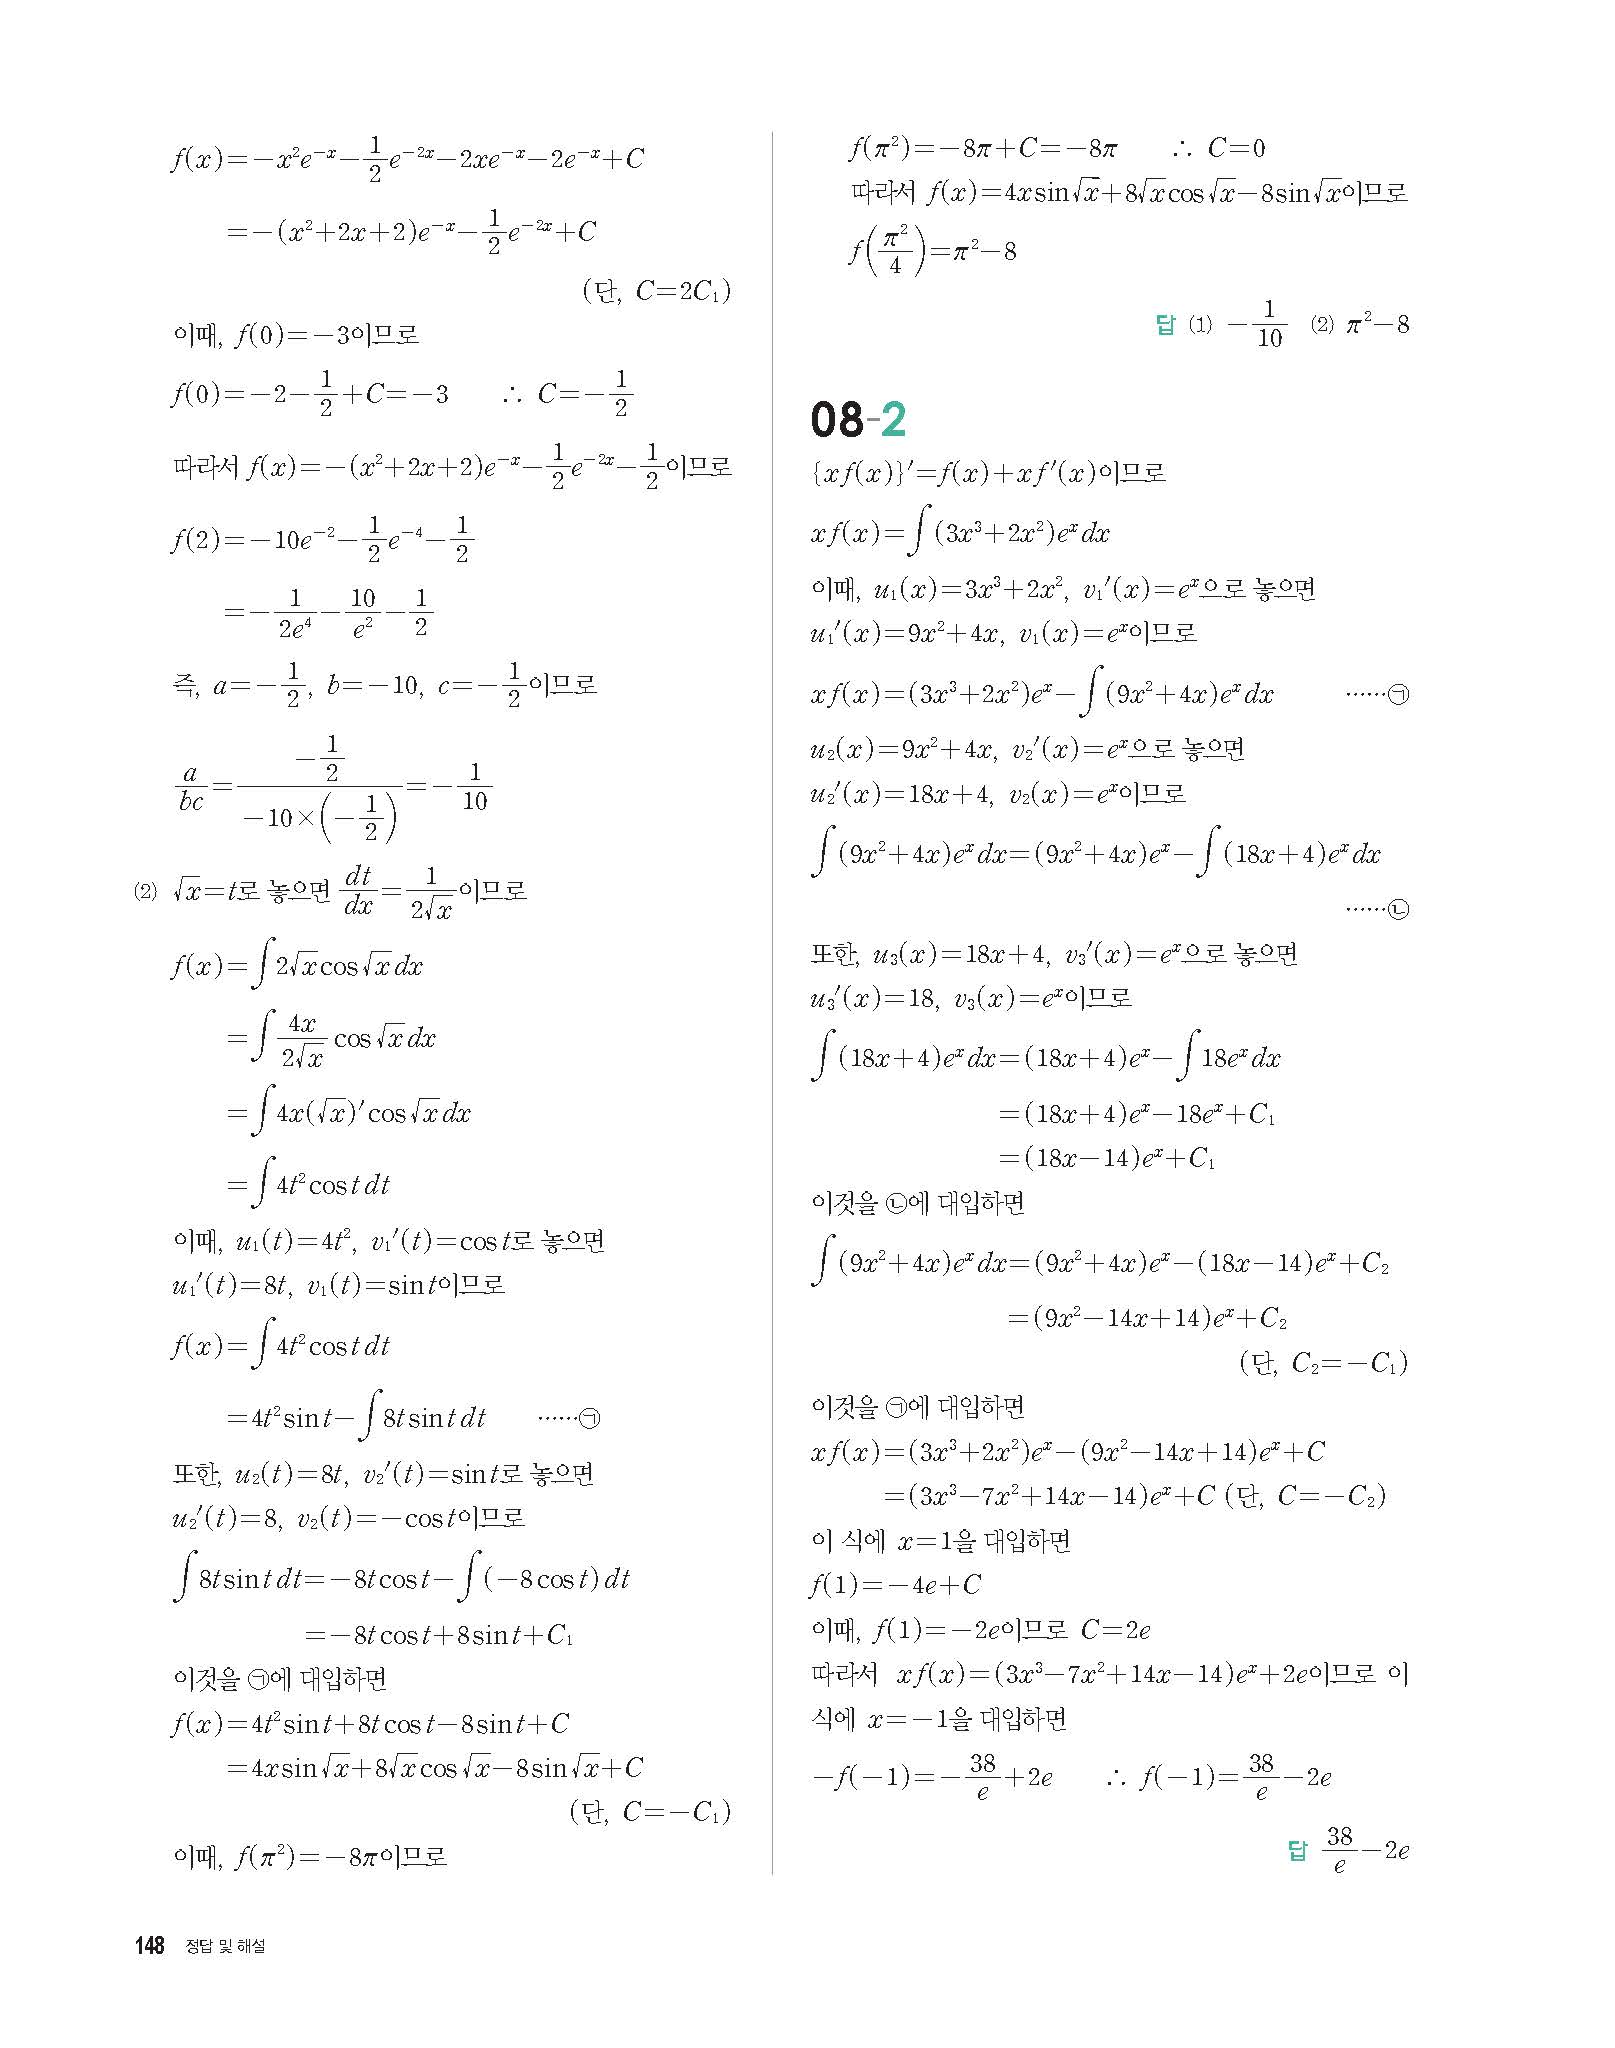 f(x)=-x²e⁻ˣ-1/2 e⁻²ˣ-2xe⁻ˣ-2e⁻ˣ+C
=-(x²+2x+2)e⁻ˣ-1/2 e⁻²ˣ+C
(단, C=2C₁)
이때, f(0)=-3이므로
f(0)=-2-1/2+C=-3 ∴ C=-1/2
따라서 f(x)=-(x²+2x+2)e⁻ˣ-1/2 e⁻²ˣ-1/2이므로
f(2)=-10e⁻²-1/2 e⁻⁴-1/2
=-1/(2e⁴)-10/e²-1/2
즉, a=-1/2, b=-10, c=-1/2이므로
a/(bc)=(-1/2)/(-10×(-1/2))=-1/10
(2) √x=t로 놓으면 dt/dx=1/(2√x)이므로
f(x)=∫2√xcos√xdx
=∫4x/(2√x) cos√xdx
=∫4x(√x)′cos√xdx
=∫4t²costdt
이때, u₁(t)=4t², v₁′(t)=cost로 놓으면
u₁′(t)=8t, v₁(t)=sint이므로
f(x)=∫4t²costdt
=4t²sint-∫8tsintdt ……㉠
또한, u₂(t)=8t, v₂′(t)=sint로 놓으면
u₂′(t)=8, v₂(t)=-cost이므로
∫8tsintdt=-8tcost-∫(-8cost)dt
=-8tcost+8sint+C₁
이것을 ㉠에 대입하면
f(x)=4t²sint+8tcost-8sint+C
=4xsin√x+8√xcos√x-8sin√x+C
(단, C=-C₁)
이때, f(π²)=-8π이므로
f(π²)=-8π+C=-8π ∴ C=0
따라서 f(x)=4xsin√x+8√xcos√x-8sin√x이므로
f(π²/4)=π²-8
답 (1) -1/10 (2) π²-8
08-2
{xf(x)}′=f(x)+xf′(x)이므로
xf(x)=∫(3x³+2x²)eˣdx
이때, u₁(x)=3x³+2x², v₁′(x)=eˣ으로 놓으면
u₁′(x)=9x²+4x, v₁(x)=eˣ이므로
xf(x)=(3x³+2x²)eˣ-∫(9x²+4x)eˣdx ……㉠
u₂(x)=9x²+4x, v₂′(x)=eˣ으로 놓으면
u₂′(x)=18x+4, v₂(x)=eˣ이므로
∫(9x²+4x)eˣdx=(9x²+4x)eˣ-∫(18x+4)eˣdx
……㉡
또한, u₃(x)=18x+4, v₃′(x)=eˣ으로 놓으면
u₃′(x)=18, v₃(x)=eˣ이므로
∫(18x+4)eˣdx=(18x+4)eˣ-∫18eˣdx
=(18x+4)eˣ-18eˣ+C₁
=(18x-14)eˣ+C₁
이것을 ㉡에 대입하면
∫(9x²+4x)eˣdx=(9x²+4x)eˣ-(18x-14)eˣ+C₂
=(9x²-14x+14)eˣ+C₂
(단, C₂=-C₁)
이것을 ㉠에 대입하면
xf(x)=(3x³+2x²)eˣ-(9x²-14x+14)eˣ+C
=(3x³-7x²+14x-14)eˣ+C (단, C=-C₂)
이 식에 x=1을 대입하면
f(1)=-4e+C
이때, f(1)=-2e이므로 C=2e
따라서 xf(x)=(3x³-7x²+14x-14)eˣ+2e이므로 이
식에 x=-1을 대입하면
-f(-1)=-38/e+2e ∴ f(-1)=38/e-2e
답 38/e-2e
148 정답 및 해설